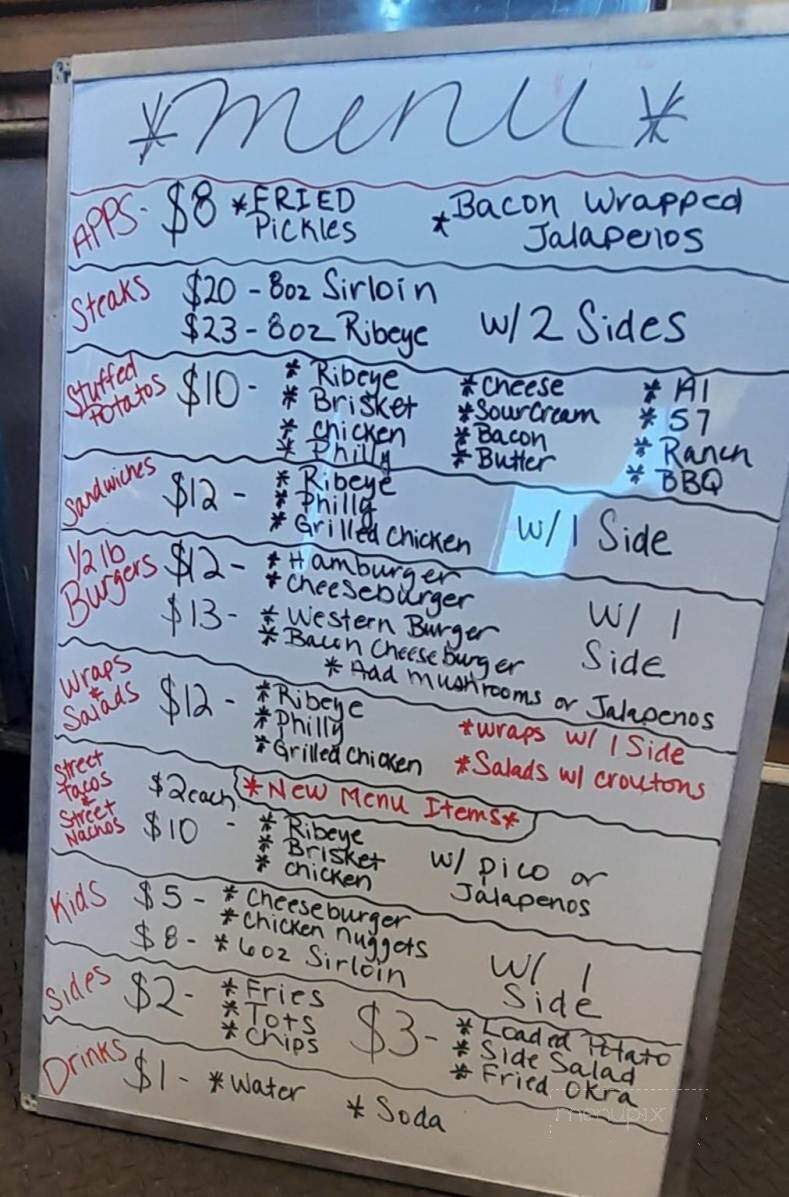 *menu*
APPS- $8 *FRIED Pickles *Bacon Wrapped Jalapenos
Steaks $20 - 8oz Sirloin
$23 - 8oz Ribeye w/2 Sides
Stuffed Potatos $10 - * Ribeye *Cheese * A1
* Brisket *SourCream * 57
* Chicken *Bacon * Ranch
* Philly *Butter * BBQ
Sandwiches $12 - * Ribeye
* Philly
* Grilled Chicken w/1 Side
1/2 lb Burgers $12 - * Hamburger
* Cheeseburger
$13 - * Western Burger
* Bacon Cheeseburger w/ 1 Side
* Add mushrooms or Jalapenos
Wraps * Salads $12 - *Ribeye
*Philly *wraps w/ 1 Side
*Grilled Chicken *Salads w/ croutons
Street Tacos * Street Nachos $2 each *New Menu Items*
$10 - * Ribeye
* Brisket
* Chicken w/ pico or Jalapenos
Kids $5 - * Cheeseburger
* Chicken nuggets
$8 - * 6oz Sirloin w/ 1 Side
Sides $2 - * Fries $3 - * Loaded Potato
* Tots * Side Salad
* Chips * Fried Okra
Drinks $1 - *Water * Soda
menupix